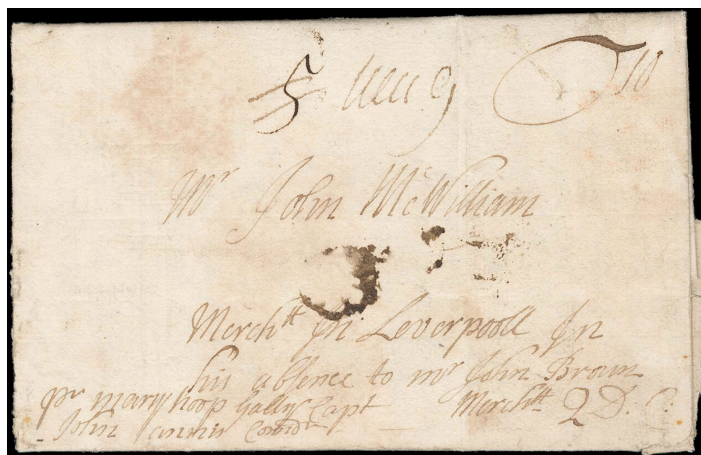 Mr John McWilliam
Merchtt In Leverpooll In
his absence to mr John Brown
Merchtt 2 D.
pr mary hoop Gally Capt
John